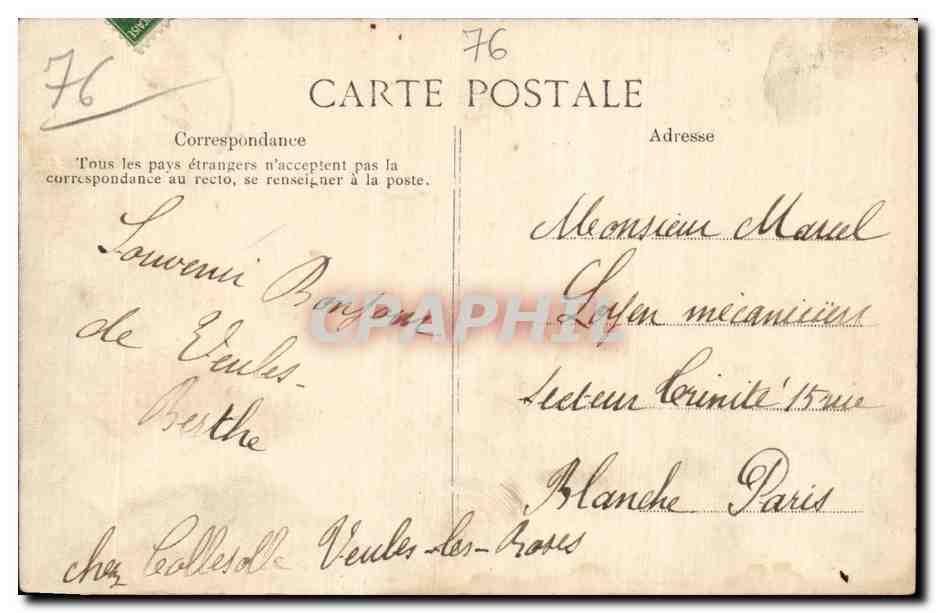 76
76
CARTE POSTALE
Correspondance
Tous les pays étrangers n'acceptent pas la
correspondance au recto, se renseigner à la poste.
Adresse
Souvenir Bonjour
de Veules-
Berthe
chez Veules-les-Roses
Monsieur Marcel
Loyen mécaniciens
secteur trinité 15 rue
Blanche Paris
CPAPHIL